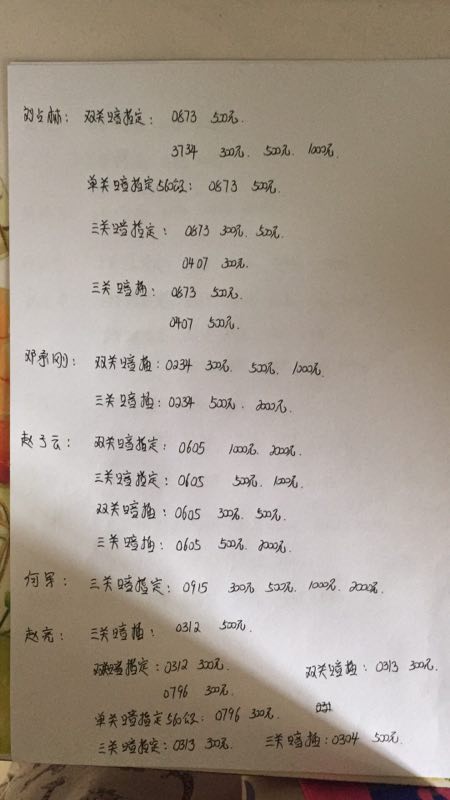 刘占林: 双关暗指定: 0873 500元.
3734 300元、500元、1000元.
单关暗指定560公证: 0873 500元.
三关暗指定: 0873 300元、500元.
0407 300元.
三关暗插: 0873 500元.
0407 500元.
邓承刚: 双关暗插: 0234 300元、500元、1000元.
三关暗插: 0234 500元、2000元.
赵子云: 双关暗指定: 0605 1000元、2000元.
三关暗指定: 0605 500元、1000元.
双关暗插: 0605 300元、500元.
三关暗插: 0605 500元、2000元.
何军: 三关暗指定: 0915 300元 500元、1000元、2000元.
赵亮: 三关暗插: 0312 500元.
双关暗指定: 0312 300元. 双关暗插: 0313 300元.
0796 300元.
单关暗指定560公证: 0796 300元.
三关暗指定: 0313 300元. 三关暗插: 0304 500元.